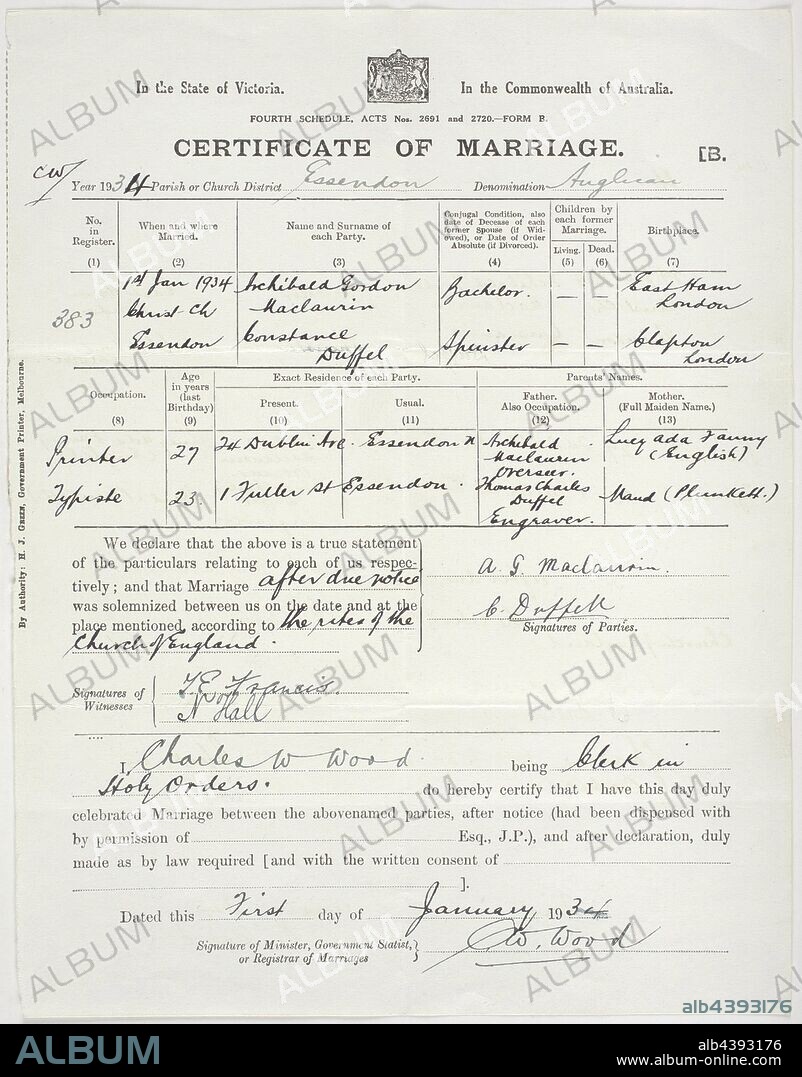 In the State of Victoria. In the Commonwealth of Australia.
FOURTH SCHEDULE, ACTS Nos. 2691 and 2720.—FORM B.
CERTIFICATE OF MARRIAGE. [B.
CW Year 1934 Parish or Church District Essendon Denomination Anglican
No. in Register. (1)
When and where Married. (2)
Name and Surname of each Party. (3)
Conjugal Condition, also date of Decease of each former Spouse (if Widowed), or Date of Order Absolute (if Divorced). (4)
Children by each former Marriage.
Living. (5)
Dead. (6)
Birthplace. (7)
383
1st Jan 1934 Archibald Gordon Bachelor. — — East Ham
Christ Ch Maclaurin London
Essendon Constance Spinster — — Clapton
Duffel London
Occupation. (8)
Age in years (last Birthday) (9)
Exact Residence of each Party.
Present. (10)
Usual. (11)
Parents' Names.
Father. Also Occupation. (12)
Mother. (Full Maiden Name.) (13)
Printer 27 24 Dublin Ave. Essendon N Archibald Maclaurin Overseer. Lucy Ada Fanny (English)
Typiste 23. 1 Fuller St Essendon. Thomas Charles Duffel Engraver. Maud (Plunkett.)
By Authority: H. J. GREEN, Government Printer, Melbourne.
We declare that the above is a true statement
of the particulars relating to each of us respec-
tively; and that Marriage after due notice
was solemnized between us on the date and at the
place mentioned, according to the rites of the
Church of England.
A. G. Maclaurin.
C. Duffell
Signatures of Parties.
Signatures of Witnesses
F. E. Francis.
N Hall
I, Charles W Wood being Clerk in
Holy Orders. do hereby certify that I have this day duly
celebrated Marriage between the abovenamed parties, after notice (had been dispensed with
by permission of Esq., J.P.), and after declaration, duly
made as by law required [and with the written consent of
].
Dated this First day of January 1934
Signature of Minister, Government Statist, or Registrar of Marriages
CW. Wood
alb4393176
ALBUM
alb4393176
www.album-online.com